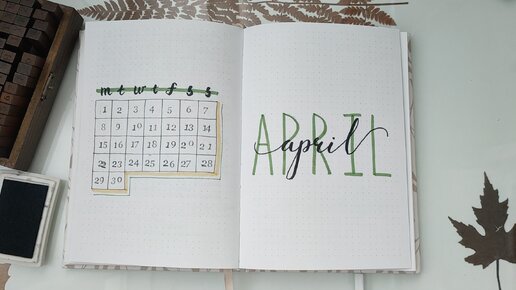 m t w t f s s
1 2 3 4 5 6 7
8 9 10 11 12 13 14
15 16 17 18 19 20 21
22 23 24 25 26 27 28
29 30
APRIL
april